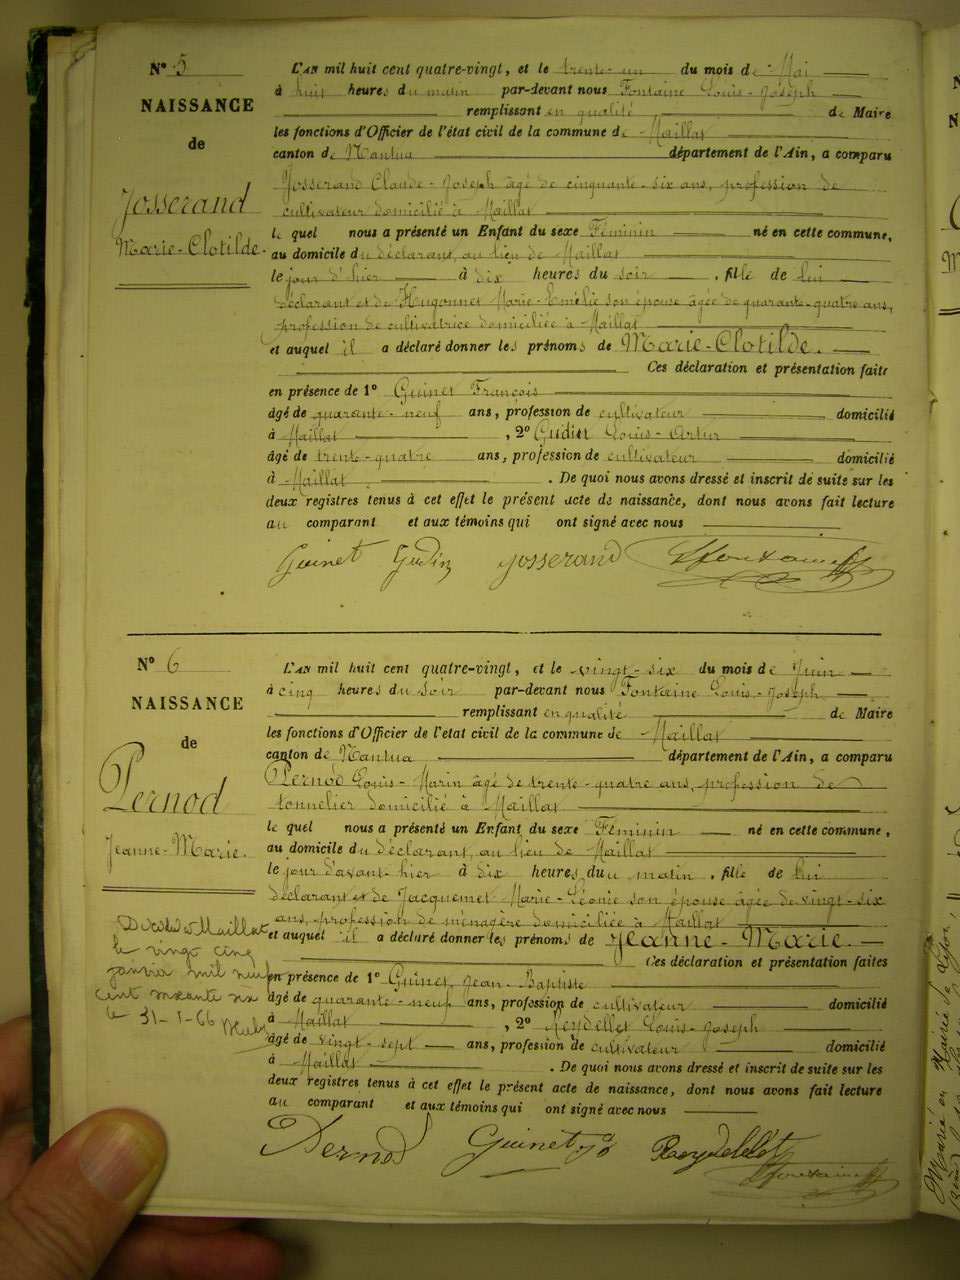 N° 5
NAISSANCE
de
Josserand
Marie-Clotilde.
L'AN mil huit cent quatre-vingt, et le trente-un du mois de Mai
à huit heures du matin par-devant nous Fontaine Louis-Joseph
remplissant en qualité de Maire
les fonctions d'Officier de l'état civil de la commune de Maillat
canton de Nantua département de l'Ain, a comparu
Josserand Claude-Joseph âgé de cinquante-six ans, profession de
cultivateur domicilié à Maillat
le quel nous a présenté un Enfant du sexe Féminin né en cette commune,
au domicile du déclarant, au lieu de Maillat
le jour d'hier à dix heures du soir, fille de lui
déclarant et de Hugonnet Marie-Emélie son épouse âgée de quarante-quatre ans,
profession de cultivatrice domiciliée à Maillat
et auquel il a déclaré donner les prénoms de Marie-Clotilde.
Ces déclaration et présentation faites
en présence de 1° Guinet François
âgé de quarante-neuf ans, profession de cultivateur domicilié
à Maillat, 2° Gudin Louis-Artur
âgé de trente-quatre ans, profession de cultivateur domicilié
à Maillat. De quoi nous avons dressé et inscrit de suite sur les
deux registres tenus à cet effet le présent acte de naissance, dont nous avons fait lecture
au comparant et aux témoins qui ont signé avec nous
Guinet Gudin Josserand Lfontaine
N° 6
NAISSANCE
de
Pernod
Jeanne-Marie.
L'AN mil huit cent quatre-vingt, et le vingt-six du mois de Juin
à cinq heures du soir par-devant nous Fontaine Louis-Joseph
remplissant en qualité de Maire
les fonctions d'Officier de l'etat civil de la commune de Maillat
canton de Nantua département de l'Ain, a comparu
Pernod Louis-Marin âgé de trente-quatre ans, profession de
tonnelier domicilié à Maillat
le quel nous a présenté un Enfant du sexe Féminin né en cette commune,
au domicile du déclarant, au lieu de Maillat
le jour d'avant-hier à dix heures du matin, fille de lui
déclarant et de Jacquemet Marie-Léonie son épouse âgée de vingt-six
ans, profession de ménagère domiciliée à Maillat
et auquel il a déclaré donner les prénoms de Jeanne-Marie.
Ces déclaration et présentation faites
en présence de 1° Guinet Jean-Baptiste
âgé de quarante-neuf ans, profession de cultivateur domicilié
à Maillat, 2° Reydellet Louis-Joseph
âgé de vingt-sept ans, profession de cultivateur domicilié
à Maillat. De quoi nous avons dressé et inscrit de suite sur les
deux registres tenus à cet effet le présent acte de naissance, dont nous avons fait lecture
au comparant et aux témoins qui ont signé avec nous
Décédée à Maillat
le vingt cinq
janvier mil neuf
cent soixante six
le 31-1-66
Pernod Guinet Reydellet
Lfontaine
Marié en Mairie de Lyon,